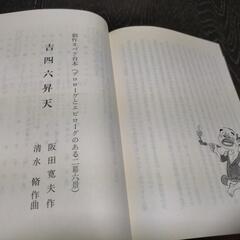 創作オペラ台本(プロローグとエピローグのある二幕六景)
吉四六昇天
阪田寛夫作
清水脩作曲